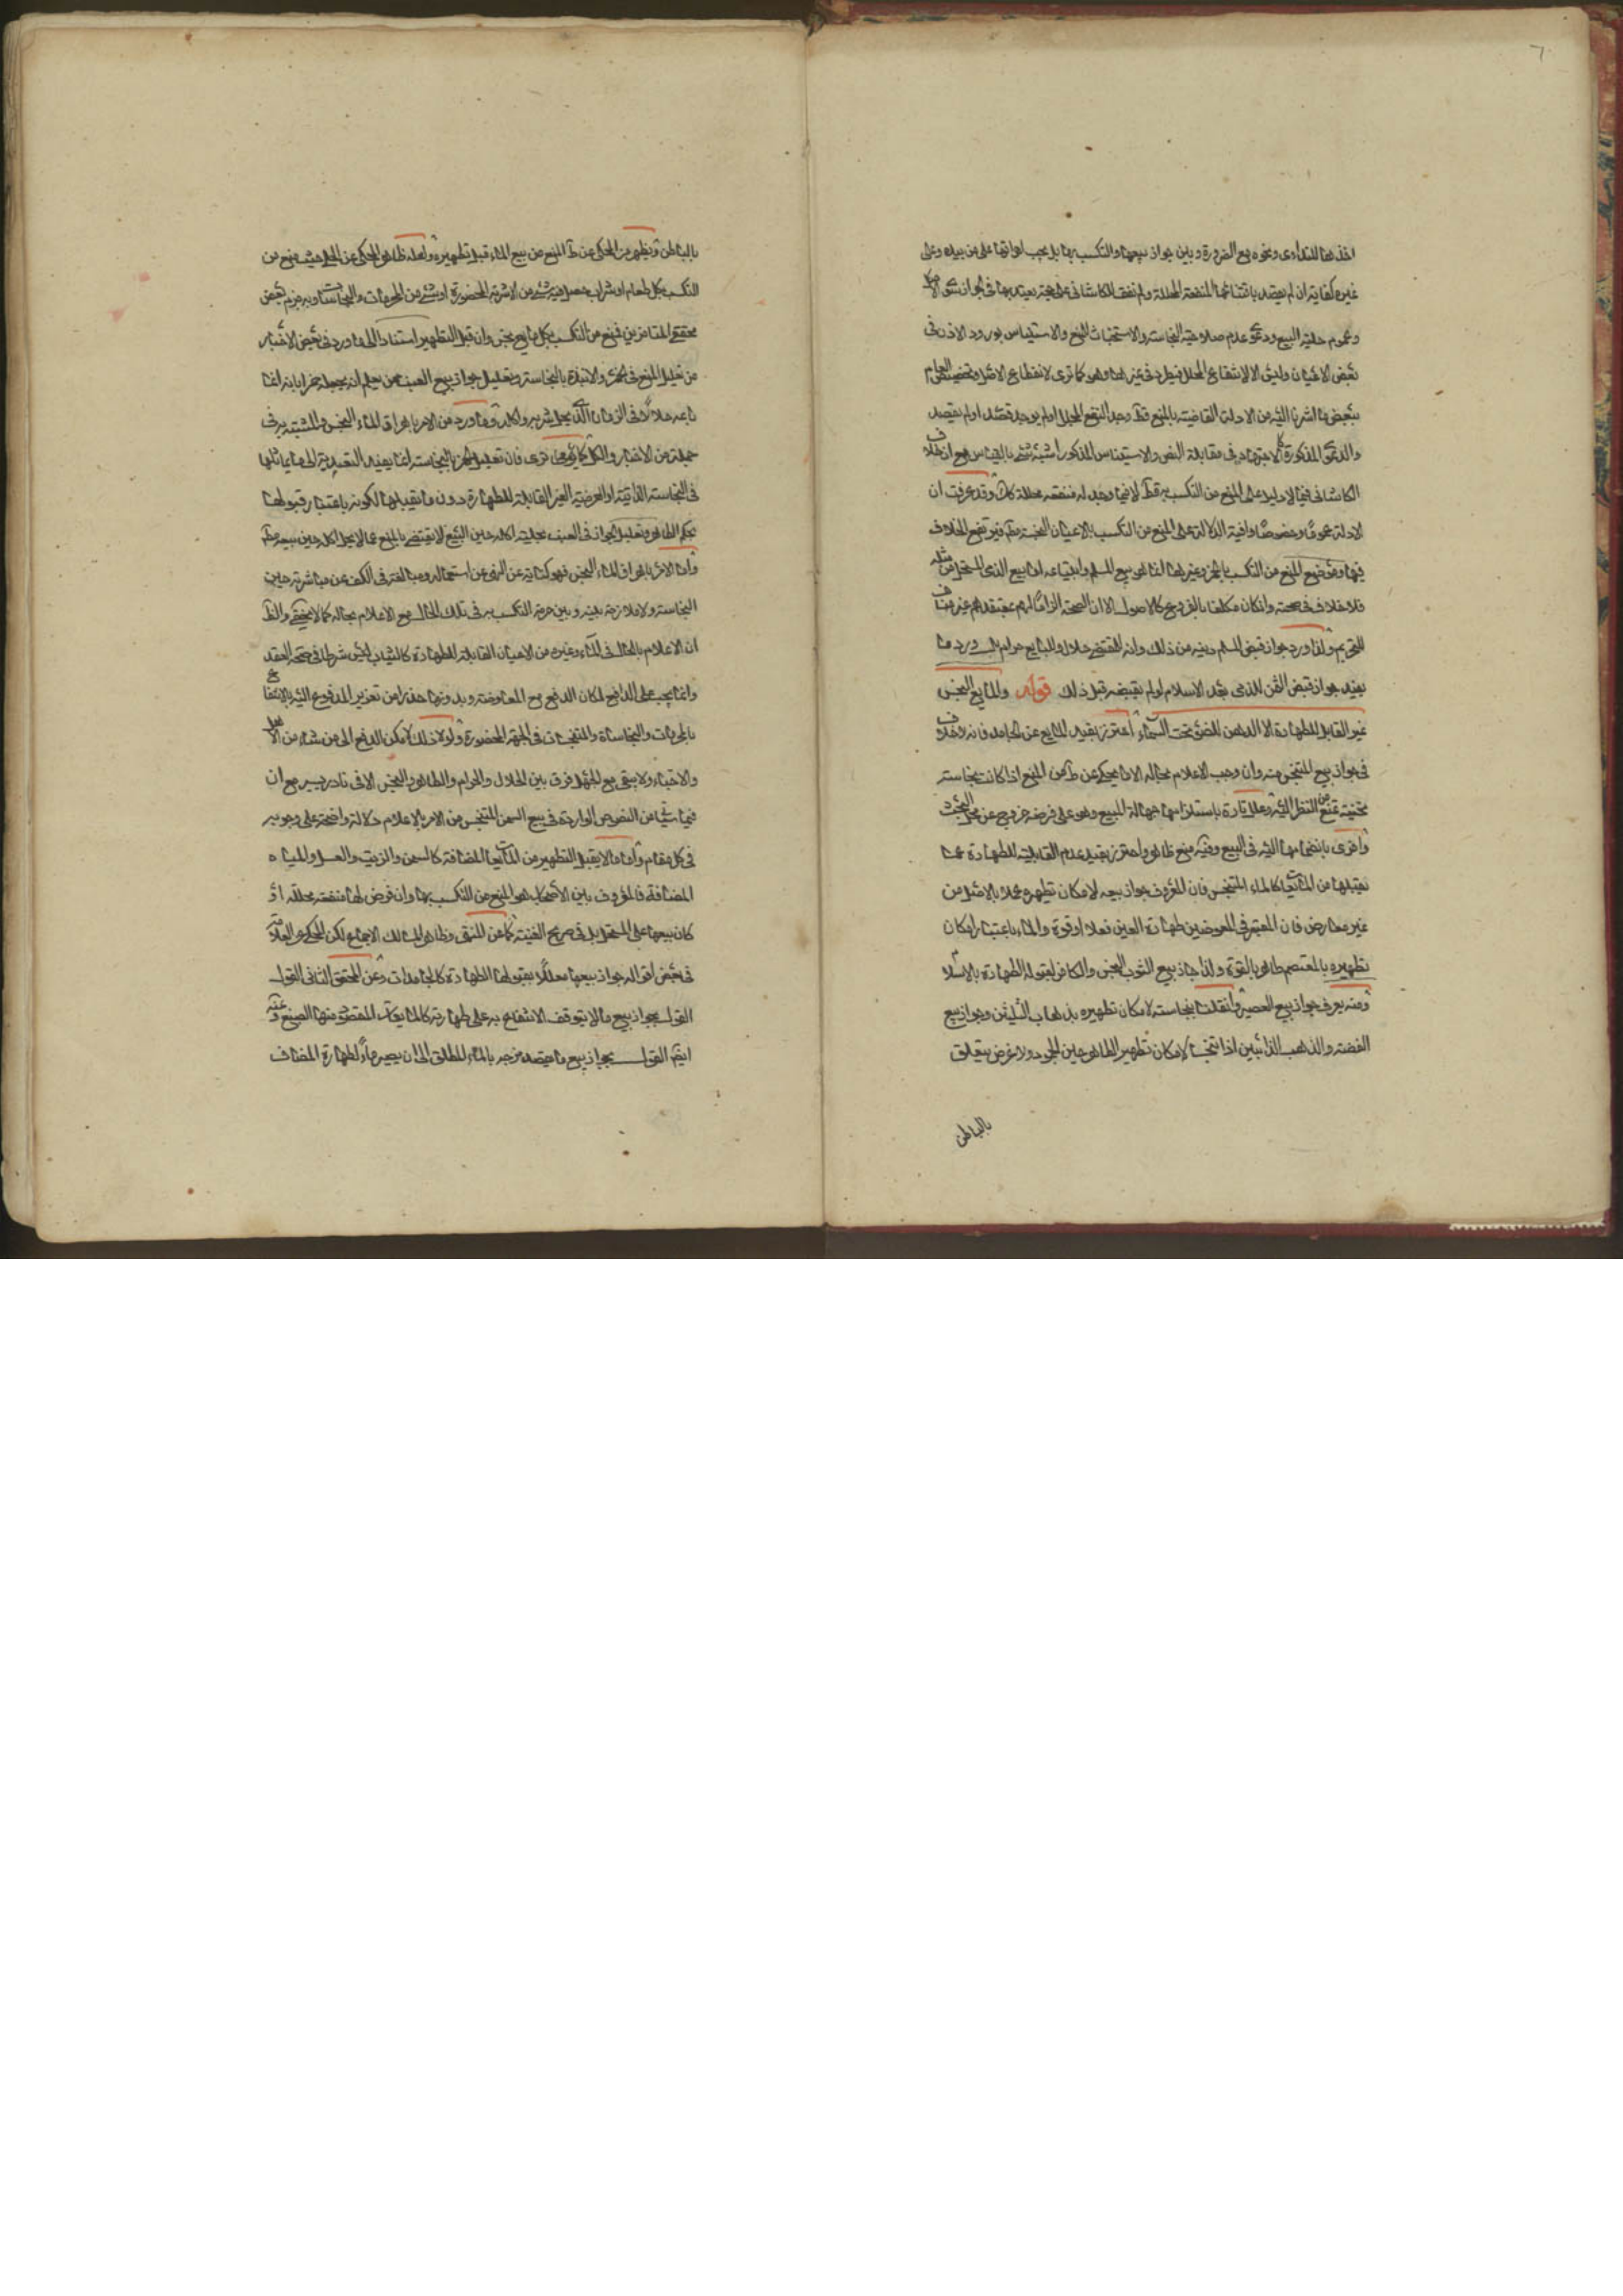 اخذها للتداوى ونحوه مع الضرورة وبين جواز بيعها والتكسب بها بل يجب اهراقها على من بيده وعلى
غيره كفاية ان لم يقصد باقتنائها المنفعة المحللة ولم نقف للكاشانى على حجة يعتد بها فى الجواز سوى الاصل
وعموم حلية البيع ودعوى عدم صلاحية النجاسة والاستخباث للمنع والاستيناس بورود الاذن فى
بعض الاعيان وليس الا للانتفاع المحلل فيطرد فى غيرها وهو كما ترى لانقطاع الاصل وتخصيص العام
ببعض ما اشرنا اليه من الادلة القاضية بالمنع قط وجد النفع المحلل اولم يوجد قصد اولم يقصد
والدعوى المذكورة كالاجتهاد فى مقابلة النص والاستيناس المذكور اشبه شئ بالقياس مع ان خلاف
الكاشانى فيما لا دليل على المنع من التكسب به قط لا فيما وجد له منفعة محللة كان وقد عرفت ان
الادلة عموما وخصوصا وافية الدلالة على المنع من التكسب بالاعيان النجسة مط فيرتفع الخلاف
فيها وموضوع المنع من التكسب بالخمر وغيرها انما هو بيع المسلم وابتياعه اما بيع الذمى المستحل من مثله
فلا خلاف فى صحته وانكان مكلفا بالفروع كالاصول الا ان الصحة الزاما لهم بمعتقدهم غير مناف
للتحريم ولذا ورد جواز قبض المسلم دينه من ذلك وانه للمقتضى حلال وللبايع حرام بل ورد ما
يفيد جواز قبض الثمن للذمى بعد الاسلام لولم يقبضه قبل ذلك قوله والمايع النجس
غير القابل للطهارة الا الدهن للضوء تحت السماء احترز بقيد المايع عن الجامد فانه لا خلاف
فى جواز بيع المتنجس منه وان وجب الاعلام بحاله الا ما يحكى عن ط من المنع اذا كانت نجاسته
ثخينة تمنع من النظر اليه وعلل تارة باستلزامها جهالة المبيع وهو على فرضه خروج عن محل البحث
واخرى بانضمامها اليه فى البيع وفيه منع ظاهر واحترز بقيد عدم القابلية للطهارة عما
يقبلها من المايعات كالماء المتنجس فان المعروف جواز بيعه لامكان تطهيره عملا بالاصل من
غير معارض فان المعتبر فى العوضين طهارة العين فعلا او قوة والماء باعتبار امكان
تطهيره بالمعتصم طاهر بالقوة ولذا جاز بيع الثوب النجس والكافر لقبوله الطهارة بالاسلام
ومنه يعرف جواز بيع العصير وان قلنا بنجاسته لامكان تطهيره بذهاب الثلثين وجواز بيع
الفضة والذهب الذائبين اذا تنجسا لامكان تطهير الظاهر حين الجمود ولا غرض يتعلق
بالباطن
بالباطن ويظهر من المحكى عن ط المنع من بيع الماء قبل تطهيره ولعله ظاهر المحكى عن الحلى حيث منع من
التكسب بكل طعام او شراب حصل فيه شئ من الاشربة المحضورة او شئ من المحرمات والنجاسات وبه جزم بعض
محققى المتاخرين فمنع من التكسب بكل مايع نجس وان قبل التطهير استنادا الى ما ورد فى بعض الاخبار
من تعليل المنع فى الخمر والانبذة بالنجاسة وتعليل جواز بيع العنب ممن يعلم انه يجعله خمرا بانه انما
باعه حلالا فى الزمان الذى يحل شربه واكله وما ورد من الامر باهراق الماء النجس والمشتبه به فى
جملة من الاخبار والكل كما ترى فان تعليل الخمر بالنجاسة انما يفيد التعدية الى ما يماثلها
فى النجاسة الذاتية او العرضية الغير القابلة للطهارة دون ما يقبلها لكونه باعتبار قبولها
بحكم الطاهر وتعليل الجواز فى العنب بحلية اكله حين البيع لا يقتضى بالمنع عما لا يحل اكله حين بيعه مط
واما الامر باهراق الماء النجس فهو كناية عن النهى عن استعماله ومبالغة فى الكف عن مباشرته حين
النجاسة ولا ملازمة بينه وبين حرمة التكسب به فى تلك الحال مع الاعلام بحاله كما لا يخفى والظ
ان الاعلام بالحال فى الماء وغيره من الاعيان القابلة للطهارة كالثياب ليس شرطا فى صحة العقد
وانما يجب على الدافع لمكان الدفع مع المعاوضة وبدونها حذرا من تعزير المدفوع اليه بالانتفاع
بالمحرمات والنجاسات والمتنجسات فى الجهة المحضورة ولولا ذلك لامكن الدفع الى من شاء من الاهل
والاحباء ولا يبقى مع الجهل فرق بين الحلال والحرام والطاهر والنجس الا فى نادر يسير مع ان
فيما سياتى من النصوص الواردة فى بيع السمن المتنجس من الامر بالاعلام دلالة واضحة على وجوبه
فى كل مقام واما ما لا يقبل التطهير من المايعات المضافة كالسمن والزيت والعسل والمياه
المضافة فالمعروف بين الاصحاب هو المنع من التكسب بها وان فرض لها منفعة محللة او
كان بيعها على المستحل بل فى صريح الغنية كما عن المنتهى وظاهر المسالك الاجماع لكن المحكى عن العلامة
فى بعض اقواله جواز بيعها معللا بقبولها الطهارة كالجامدات وعن المحقق الثانى القول
القول بجواز بيع ما لا يتوقف الانتفاع به على طهارته كالمايعات المقصود منها الصبغ وعنه
ايضا القول بجواز بيع ما يقصد مزجه بالماء المطلق الى ان يصير ماء لطهارة المضاف